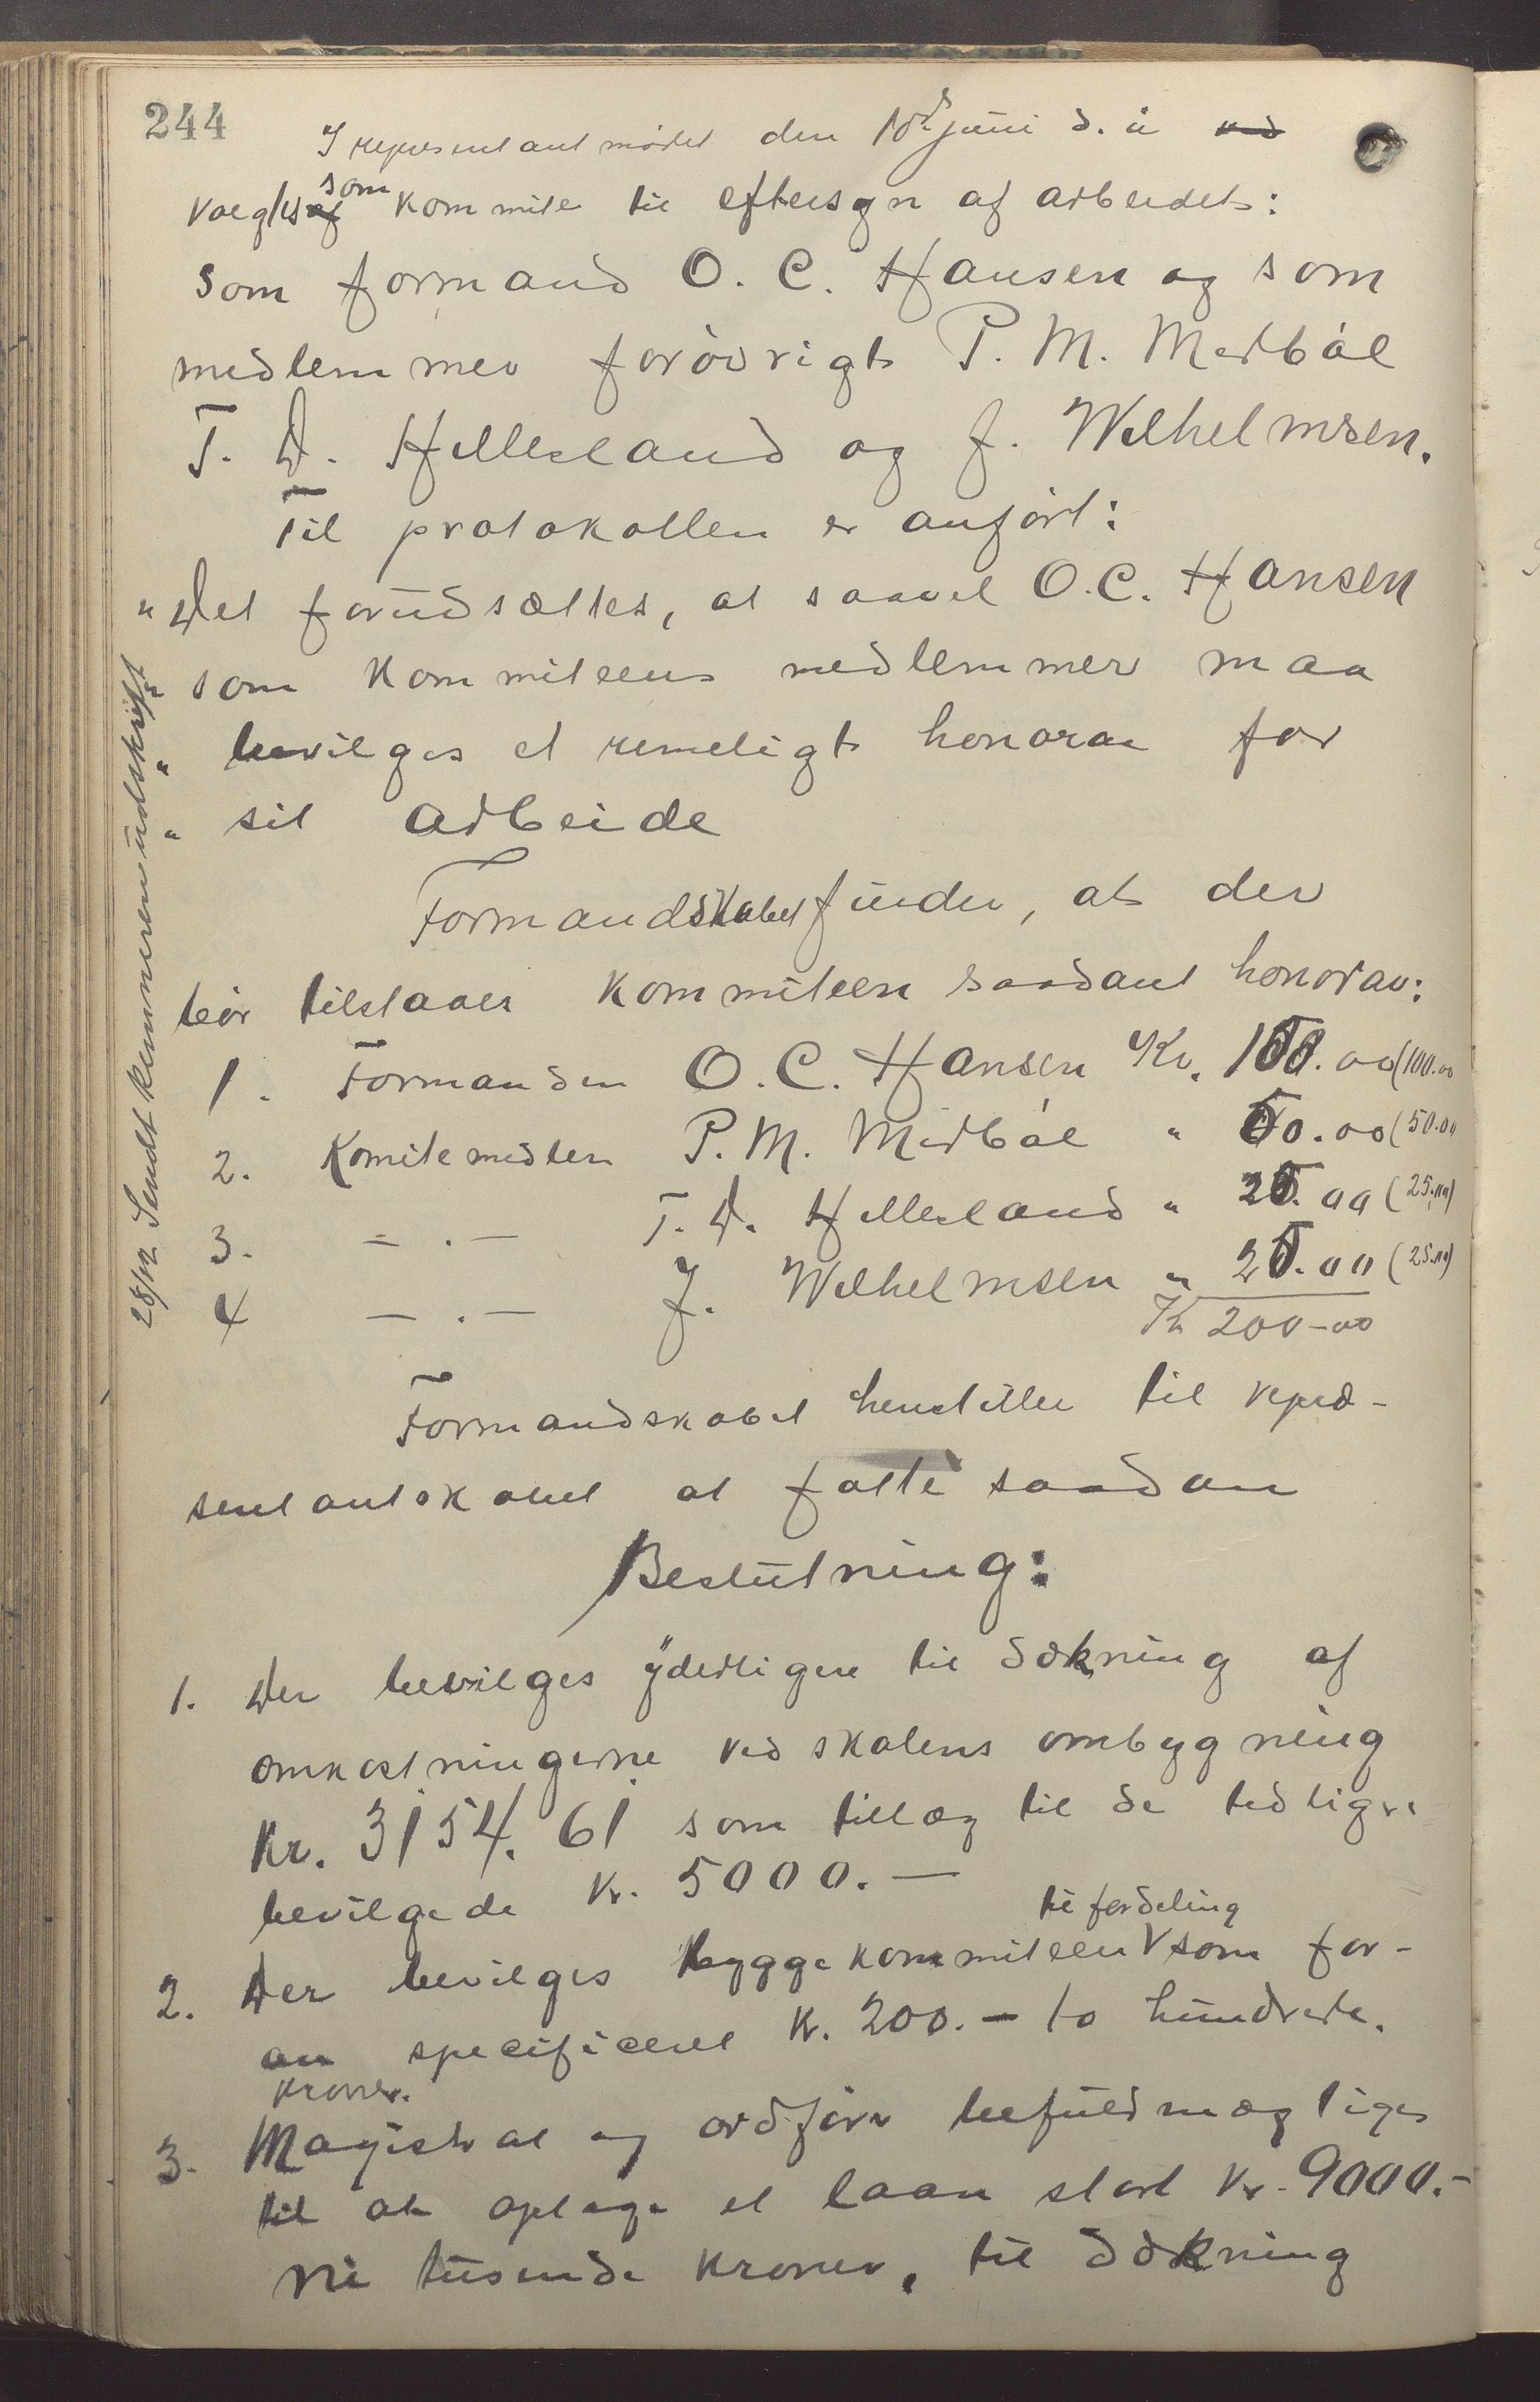 244
I representantmødet den 10de juni d. å ved
valgtes af som kommite til eftersyn af arbeidet:
som formand O. C. Hansen og som
medlemmer forøvrigt P. M. Midbøe
T. D. Hellesland og J. Wilhelmsen.
Til protokollen er anført:
"Det forudsættes, at saavel O. C. Hansen
" som kommiteens medlemmer maa
" bevilges et rimeligt honorar for
" sit arbeide
Formandskabet finder, at der
bør tilstaaes kommiteen saadant honorar:
1. Formanden O. C. Hansen Kr. 100.00 (100.00
2. Komitemedlem P. M. Midbøe " 50.00 (50.00
3. - . - T. D. Hellesland " 25.00 (25.00)
4 - . - J. Wilhelmsen " 25.00 (25.00)
Kr 200-00
Formandskabet henstiller til repræ-
sentantskabet at fatte saadan
Beslutning:
1. Der bevilges yderligere til dækning af
omkostningerne ved skolens ombygning
kr. 3154.61 som tillæg til de tidligere
bevilgede kr. 5000.-
til fordeling
2. Der bevilges byggekommiteen V som for-
an specificeret kr. 200.- to hundrede.
kroner.
3. Magistrat og ordfører befuldmægtiges
til at optage et laan stort kr. 9000.-
ni tusinde kroner, til dækning
28/12 Sendt kemneren udskrift